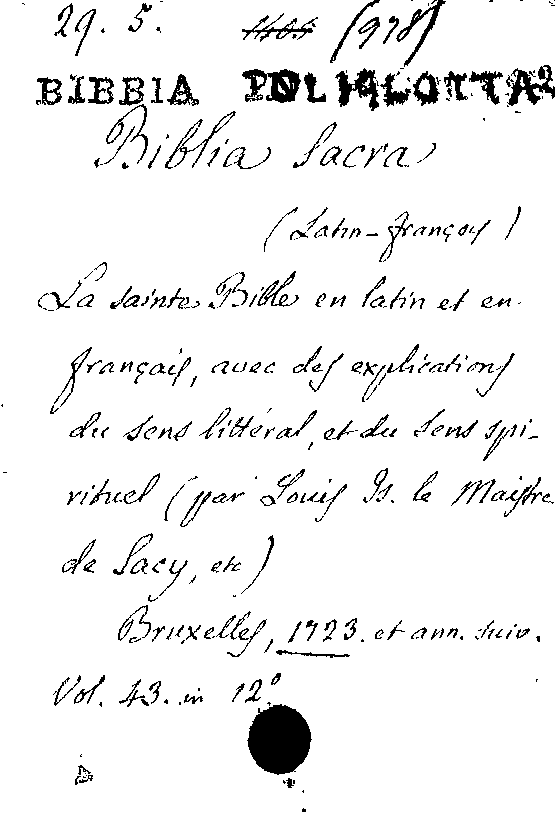 29. 5. 1405 (978)
BIBBIA POLIGLOTTA
Biblia Sacra
(Latin-françois)
La sainte Bible en latin et en
français, avec des explications
du sens littéral, et du sens spi-
rituel (par Louis Is. le Maistre
de Sacy, etc)
Bruxelles, 1723. et ann. suiv.
Vol. 43. in 12º